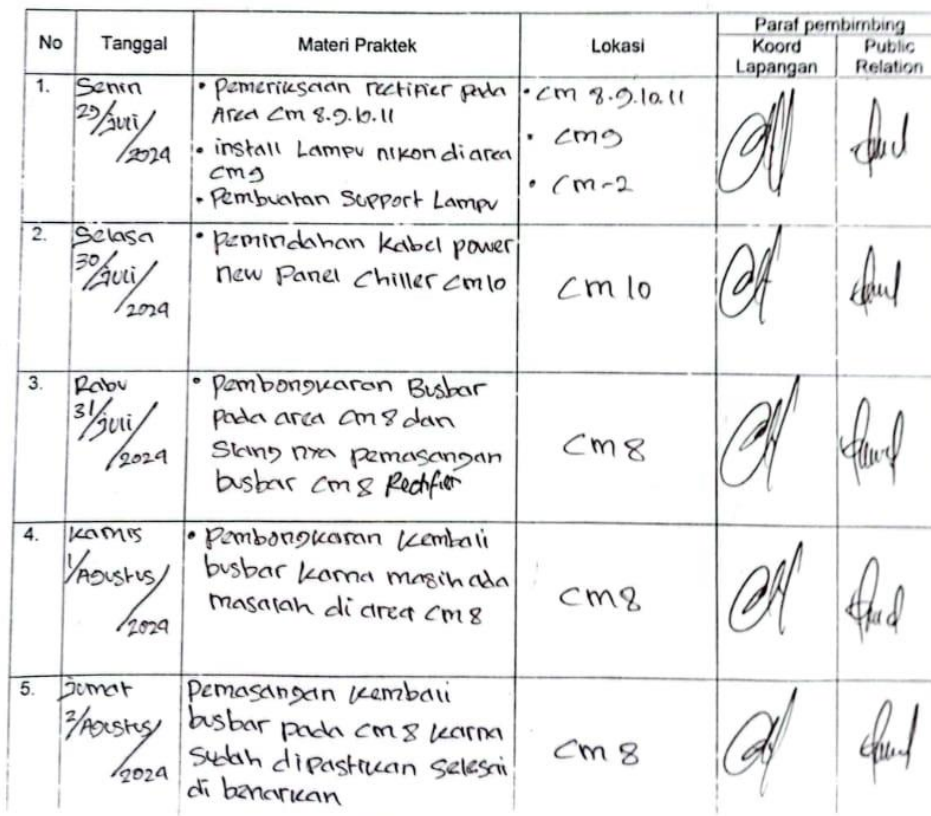 No Tanggal Materi Praktek Lokasi Paraf pembimbing
Koord Lapangan Public Relation
1. Senin
29/Juli/2024
• Pemeriksaan rectifier pada
Area Cm 8.9.10.11
• install Lampu nikon di area
Cm9
• Pembuatan Support Lampu
• Cm 8.9.10.11
• Cm9
• Cm-2
2. Selasa
30/Juli/2024
• pemindahan kabel power
new Panel Chiller Cm10
Cm 10
3. Rabu
31/Juli/2024
• Pembongkaran Busbar
pada area Cm 8 dan
Siang nya pemasangan
busbar Cm 8 Rectifier
Cm 8
4. Kamis
1/Agustus/2024
• Pembongkaran kembali
busbar karna masih ada
masalah di area Cm 8
Cm 8
5. Jumat
2/Agustus/2024
Pemasangan kembali
busbar pada Cm 8 karna
Sudah dipastikan selesai
di benarkan
Cm 8